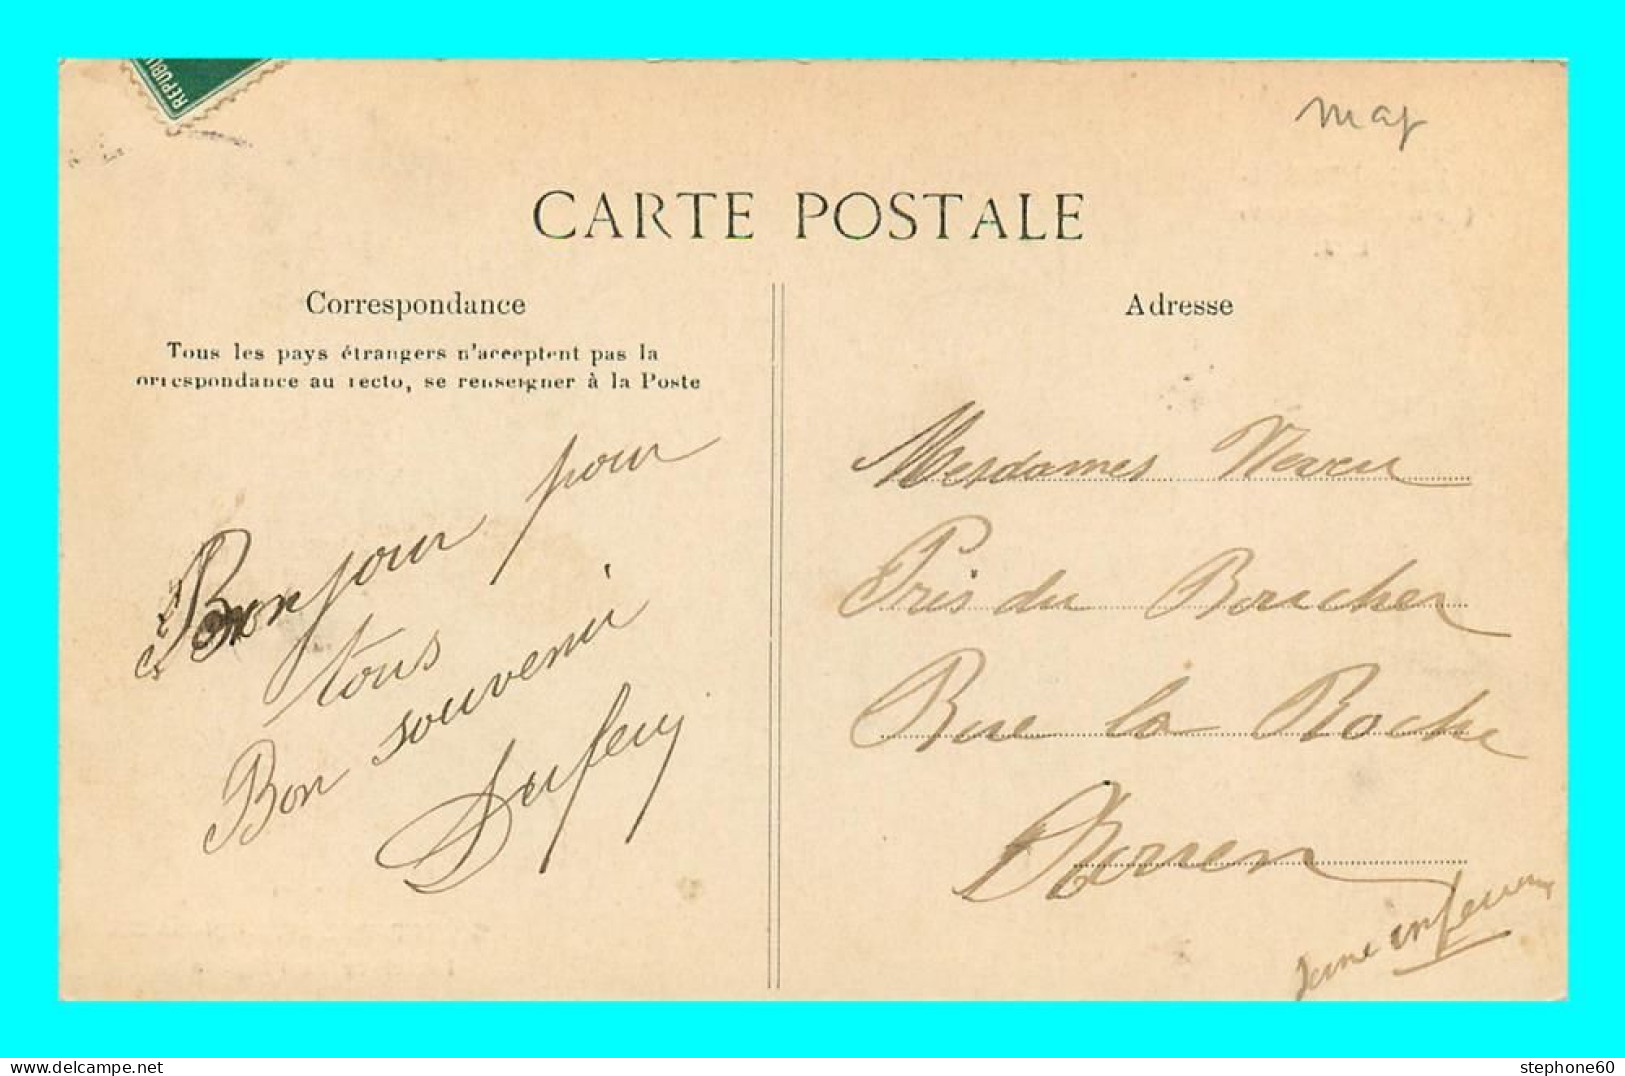 REPUBLI
may
CARTE POSTALE
Correspondance
Tous les pays étrangers n'acceptent pas la
orrespondance au recto, se renseigner à la Poste
Bonjour pour
tous
Bon souvenir
Adresse
Mesdames
Près du Boucher
Rue la Roche
Seine inférieure
stephone60